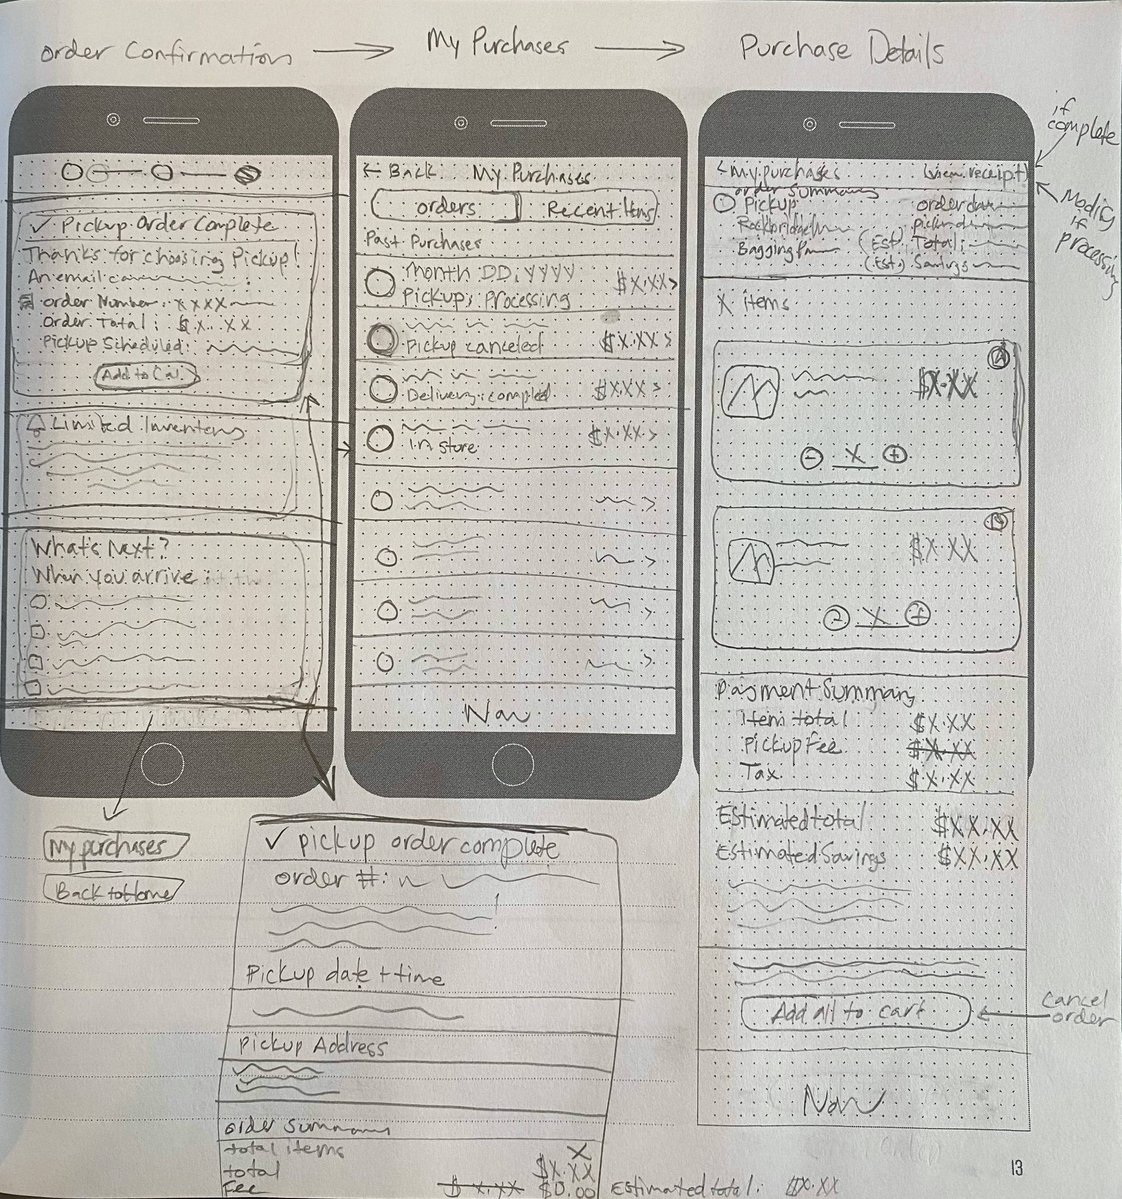 Order Confirmation → My Purchases → Purchase Details
if complete
Modify if processing
✓ Pickup Order Complete
Thanks for choosing Pickup!
An email
Order Number: XXXX
Order Total: $X.XX
Pickup Scheduled:
Add to Cal
Limited Inventory
What's Next?
When you arrive:
My purchases
Back to Home
← Back My Purchases
orders Recent Items
Past Purchases
Month DD, YYYY
Pickup: Processing $X.XX >
Pickup canceled $X.XX >
Delivery: completed $X.XX >
In store $X.XX >
Nav
< My purchases (view receipt)
order summary
Pickup order date
Rockbridge pickup
Bagging (Est.) Total:
(Est.) Savings
X items
$X.XX
- X +
$X.XX
X +
Payment Summary
Item total $X.XX
Pickup Fee $X.XX
Tax $X.XX
Estimated total $XX.XX
Estimated Savings $XX.XX
Add all to cart
Cancel order
Nav
✓ pickup order complete
order #:
Pickup date + time
Pickup Address
order summary
total items X
total $X.XX
Fee $X.XX $0.00
Estimated total: $X.XX
13